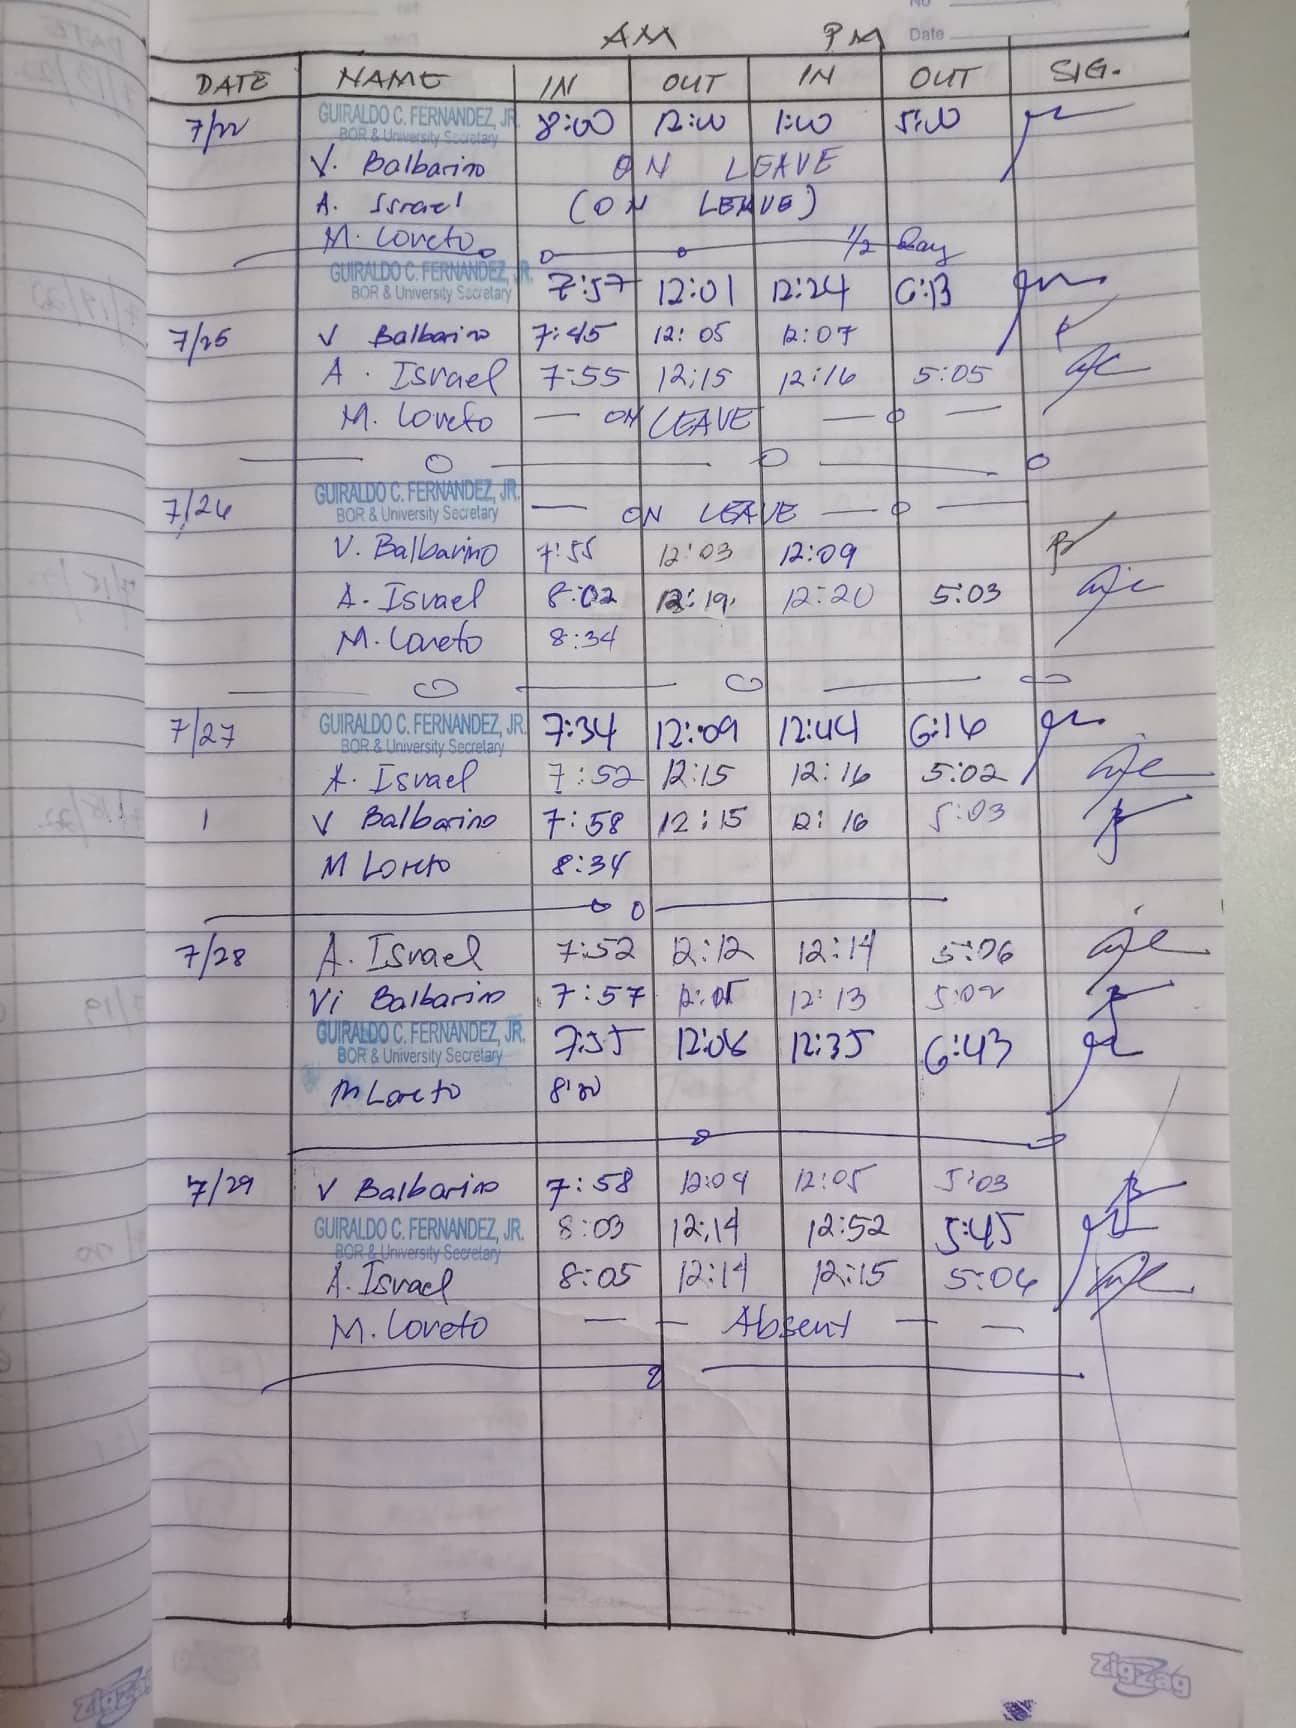 No
Date
AM PM
DATE NAME IN OUT IN OUT SIG.
7/22 GUIRALDO C. FERNANDEZ, JR. 8:00 12:00 1:00 5:00
BOR & University Secretary
V. Balbarino ON LEAVE
A. Israel (ON LEAVE)
M. Loreto 1/2 Day
GUIRALDO C. FERNANDEZ, JR. 7:57 12:01 12:24 6:13
BOR & University Secretary
7/25 V Balbarino 7:45 12:05 12:07
A. Israel 7:55 12:15 12:16 5:05
M. Loreto — ON LEAVE — o —
7/26 GUIRALDO C. FERNANDEZ, JR. — ON LEAVE — o —
BOR & University Secretary
V. Balbarino 7:55 12:03 12:09
A. Israel 8:02 12:19 12:20 5:03
M. Loreto 8:34
7/27 GUIRALDO C. FERNANDEZ, JR. 7:34 12:09 12:44 6:16
BOR & University Secretary
A. Israel 7:52 12:15 12:16 5:02
V Balbarino 7:58 12:15 12:16 5:03
M Loreto 8:34
7/28 A. Israel 7:52 12:12 12:14 5:06
Vi Balbarino 7:57 12:05 12:13 5:02
GUIRALDO C. FERNANDEZ, JR. 7:55 12:06 12:35 6:43
BOR & University Secretary
M Loreto 8:20
7/29 V Balbarino 7:58 12:04 12:05 5:03
GUIRALDO C. FERNANDEZ, JR. 8:03 12:14 12:52 5:45
BOR & University Secretary
A. Israel 8:05 12:14 12:15 5:06
M. Loreto — — Absent — —
ZigZag